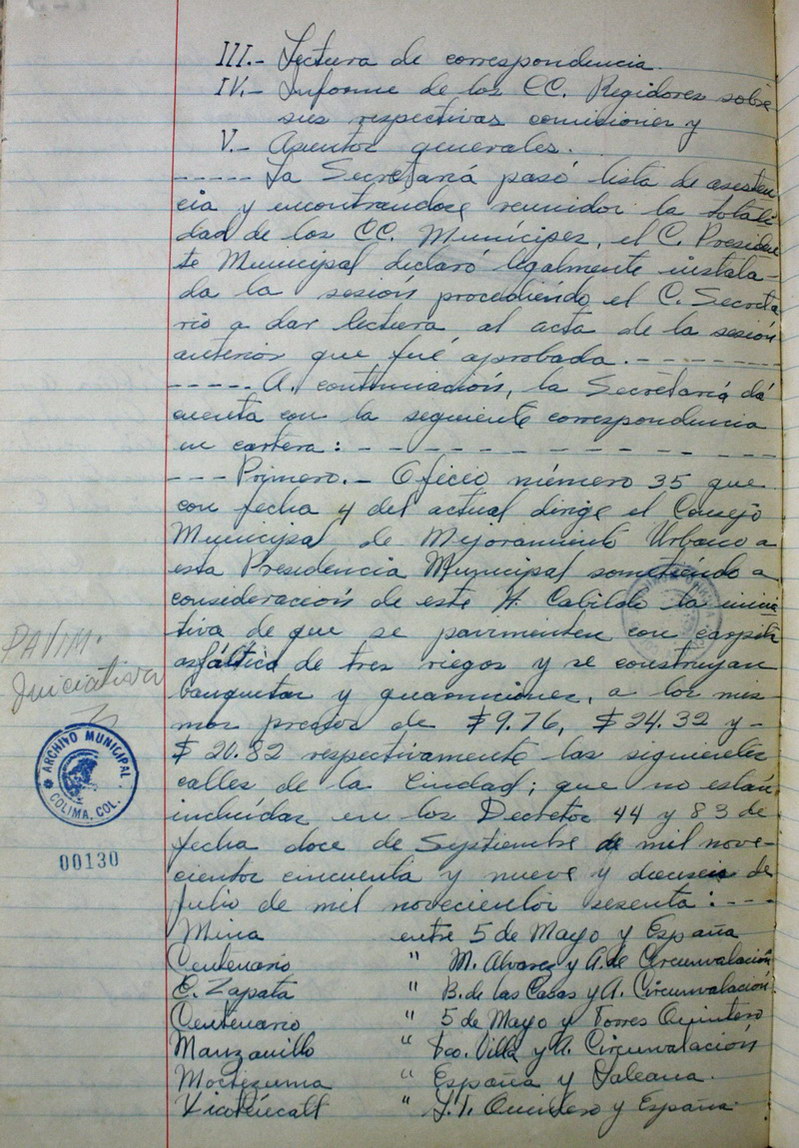 III.- Lectura de correspondencia.
IV.- Informe de los CC. Regidores sobre
sus respectivas comisiones y
V.- Asuntos generales.
----- La Secretaría pasó lista de asisten
cia y encontrándose reunidos la totali
dad de los CC. Munícipes, el C. Presiden
te Municipal declaró legalmente instala-
da la sesión procediendo el C. Secreta
rio a dar lectura al acta de la sesión
anterior que fué aprobada. - - - - - - - -
----- A continuación, la Secretaría dá
cuenta con la siguiente correspondencia
en cartera: - - - - - - - - - - - -
- - - Primero.- Oficio número 35 que
con fecha 4 del actual dirige el Consejo
Municipal de Mejoramiento Urbano a
esta Presidencia Municipal sometiendo a
consideración de este H. Cabildo la inicia
tiva de que se pavimenten con carpeta
asfáltica de tres riegos y se construyan
banquetas y guarniciones, a los mis-
mos precios de $9.76, $24.32 y -
$20.82 respectivamente las siguientes
calles de la Ciudad; que no están
incluídas en los Decretos 44 y 83 de
fecha doce de Septiembre de mil nove-
cientos cincuenta y nueve y dieciseis de
Julio de mil novecientos sesenta: - - -
Mina entre 5 de Mayo y España
Centenario " M. Alvarez y A. de Circunvalación
E. Zapata " B. de las Casas y A. Circunvalación
Centenario " 5 de Mayo y Torres Quintero
Manzanillo " Fco. Villa y A. Circunvalación
Moctezuma " España y Galeana.
Xicoténcatl " G. T. Quintero y España
PAVIM.
Iniciativa
ARCHIVO MUNICIPAL
COLIMA, COL.
00130